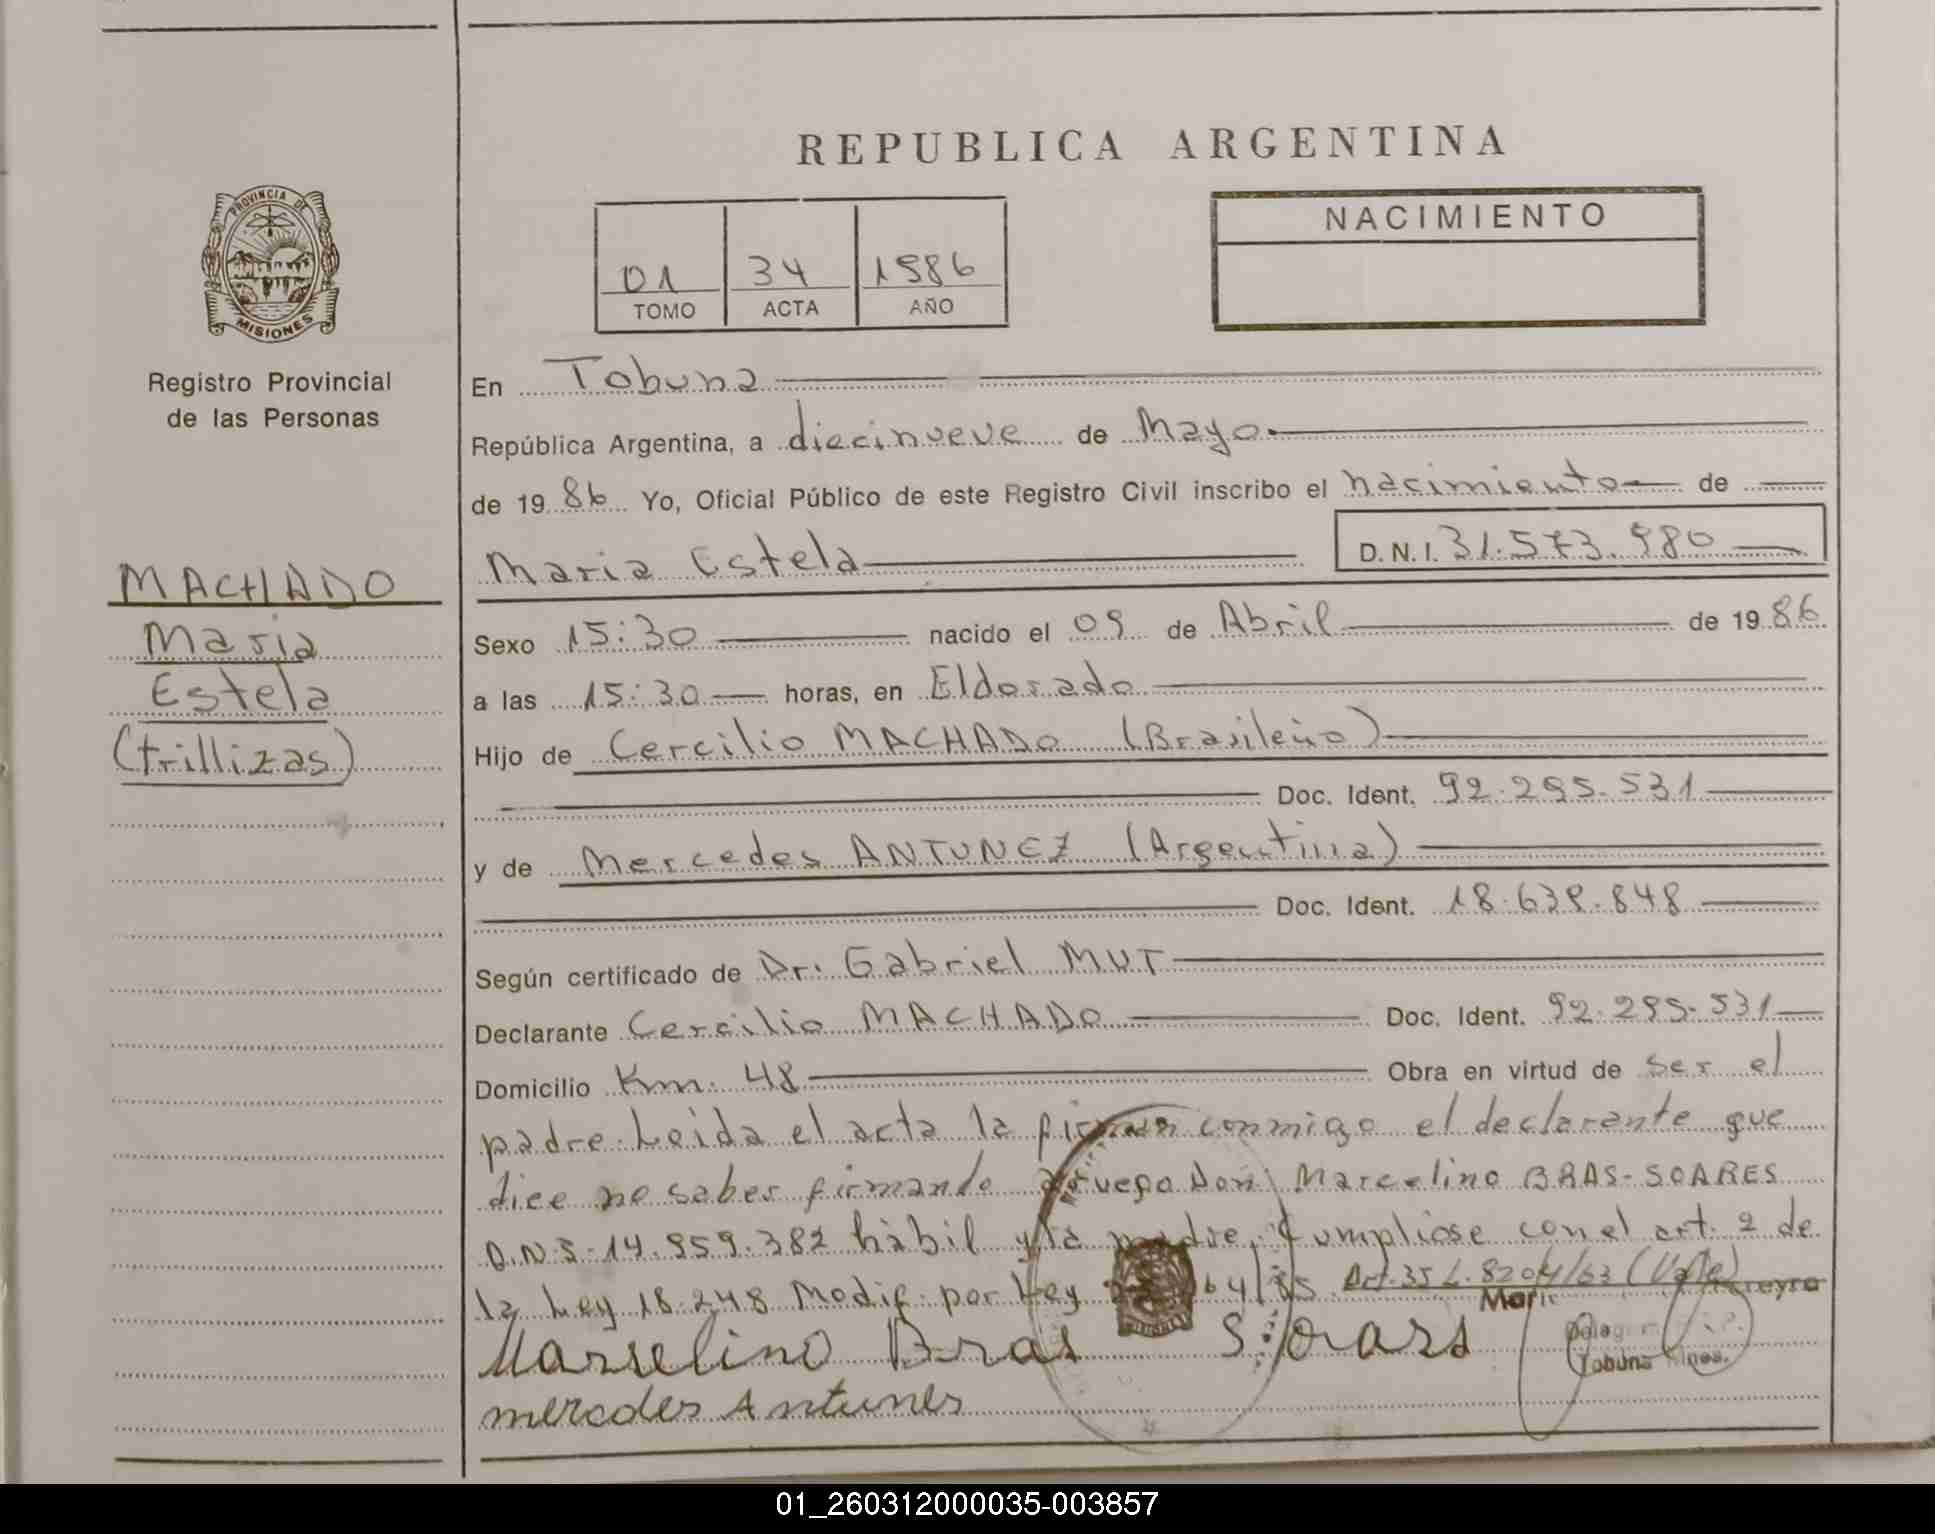 REPUBLICA ARGENTINA
PROVINCIA DE
MISIONES
Registro Provincial
de las Personas
01 34 1986
TOMO ACTA AÑO
NACIMIENTO
En Tobuna
República Argentina, a diecinueve de Mayo.
de 19 86 Yo, Oficial Público de este Registro Civil inscribo el nacimiento de
Maria Estela D.N.I. 31.573.980
MACHADO
Maria
Estela
(trillizas)
Sexo 15:30 nacido el 09 de Abril de 19 86
a las 15:30 horas, en Eldorado
Hijo de Cercilio MACHADO (Brasileño)
Doc. Ident. 92.295.531
y de Mercedes ANTUNEZ (Argentina)
Doc. Ident. 18.639.848
Según certificado de Dr. Gabriel MUT
Declarante Cercilio MACHADO Doc. Ident. 92.295.531
Domicilio Km. 48 Obra en virtud de ser el
padre. Leida el acta la firman conmigo el declarante que
dice no saber firmando a ruego Don Marcelino BRAS-SOARES
D.N.I. 14.959.382 hàbil y la madre. Cumpliose con el art. 2 de
la Ley 18.248 Modif. por Ley 64/85 Art. 35 L. 8204/63 (Vale)
Marselino Bras Soars
Tobuna
mercedes Antunes
01_260312000035-003857